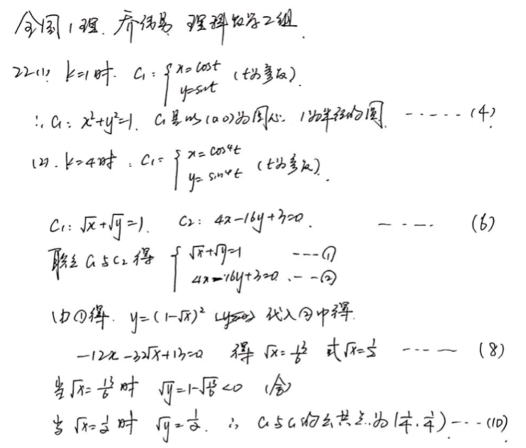 全国1理. 乔伟男 理科数学2组.
22(1). k=1时. C₁: { x=cost y=sint (t为参数).
∴C₁: x²+y²=1. C₁是以(0,0)为圆心. 1为半径的圆. ……(4)
(2). k=4时. C₁= { x=cos⁴t y=sin⁴t (t为参数).
C₁: √x+√y=1. C₂: 4x-16y+3=0. ---- (6)
联立C₁与C₂得 { √x+√y=1 ---① 4x-16y+3=0 ---②
由①得. y=(1-√x)² 代入②中得.
-12x-32√x+13=0 得 √x=13/6 或√x=1/2 ---- (8)
当√x=13/6时 √y=1-√13/6<0 (舍)
当√x=1/2时 √y=1/2. ∴ C₁与C₂的公共点为(1/4,1/4) --- (10)